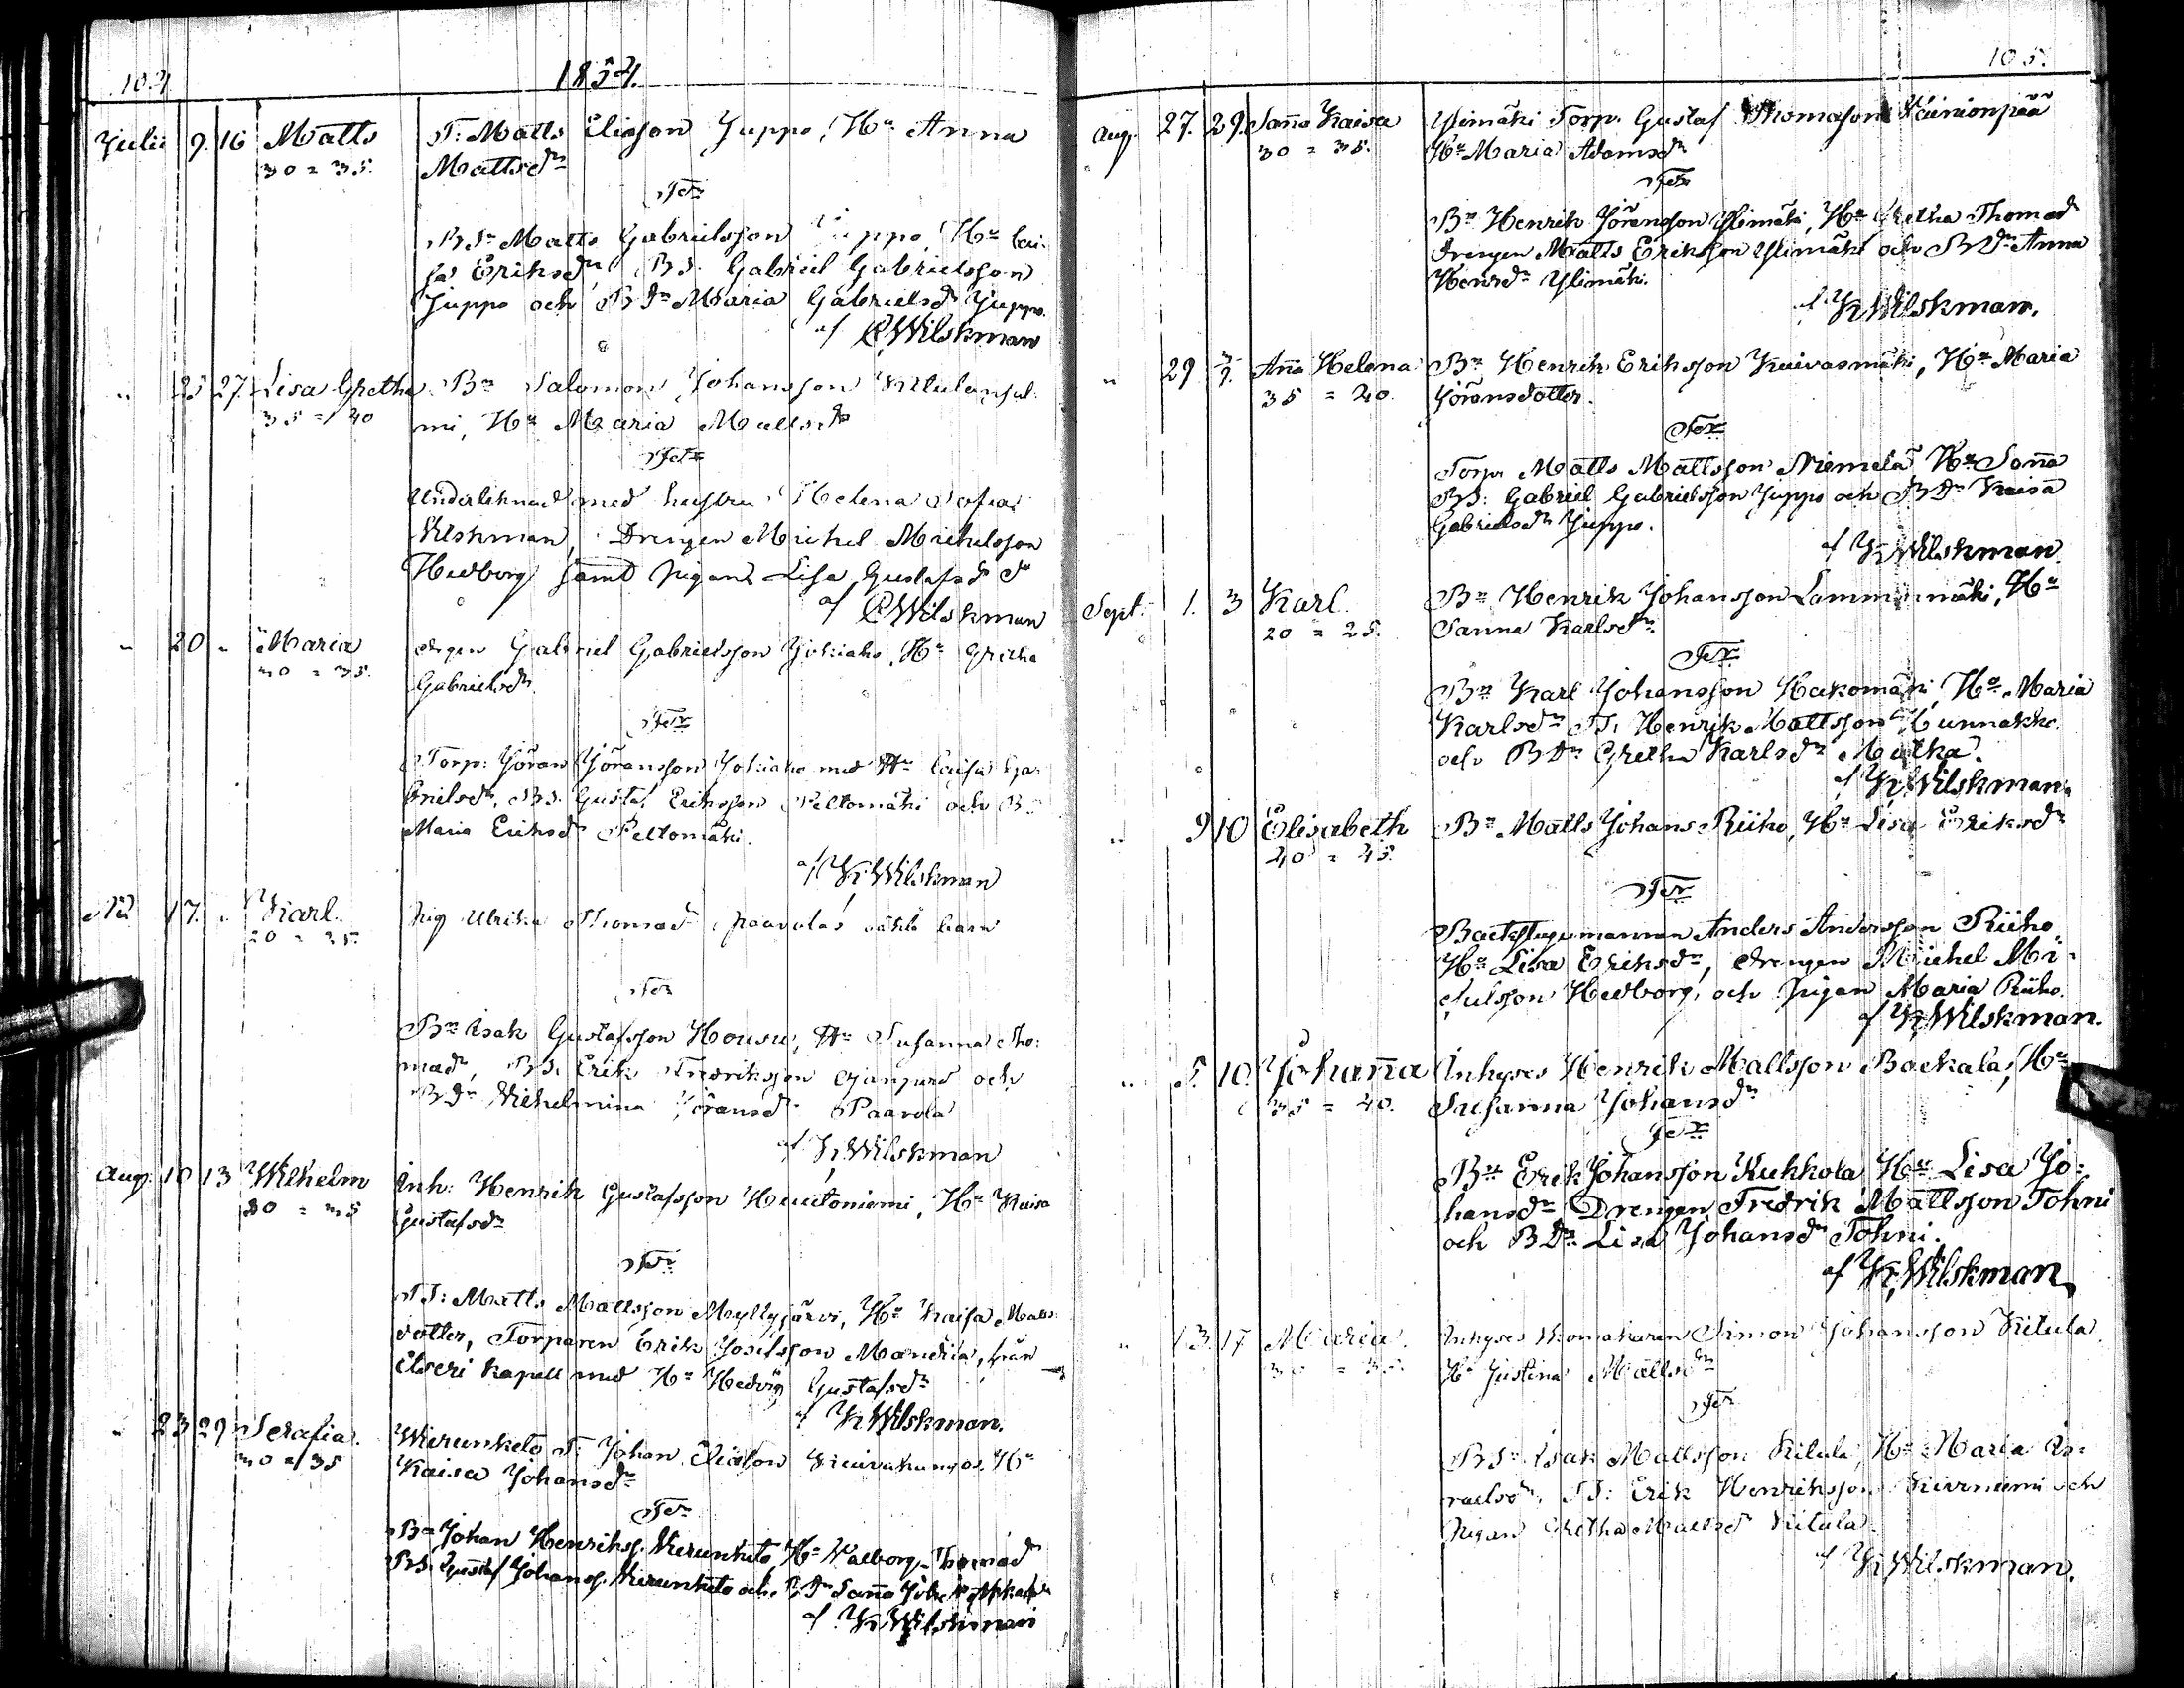 104
1854.
Julii 9. 16 Matts T: Matts Eliasson Juppo, Hu Anna
30 = 35. Mattsdr
Ter
BSn Matts Gabrielsson Juppo, Hu Cai-
sa Eriksdr, BS. Gabriel Gabrielsson
Juppo och BDr Maria Gabrielsdr Juppo.
af CWilskman
" 25 27. Lisa Gretha Bn Salomon Johansson Kitulansal-
35 = 40 mi, Hu Maria Mattsdr
Ter
med Helena Sofia
Wilskman, Drengen Mickel Mickelsson
Hedborg samt Pigan Lisa Gustafsdr
af CWilskman
" 20 " Maria drgen Gabriel Gabrielsson Jokiaho, Hu Gretha
30 = 35. Gabrielsdr
Ter
Torp: Jöran Jöransson Jokiaho med Hu Caisa Ga-
brielsdr, BS. Gustaf Eriksson Peltomäki och B
Maria Eriksdr Peltomäki.
af K. Wilskman
17. " Karl. Pig Ulrika Thomasdr Paavolas oäkta barn
20 = 25.
Ter
Bn Isak Gustafsson Housu, Hu Susanna Tho-
masdr, BS. Erik Fredriksson och
BDr Wilhelmina Jöransdr Paavola
af K. Wilskman
Aug. 10 13 Wilhelm Inh: Henrik Gustafsson Hautoniemi, Hu Kaisa
30 = 35 Gustafsdr
Ter
TS: Matts Mattsson Myllyjärvi, Hu Kaisa Matts-
dotter, Torparen Erik Josefsson från
Etseri Kapell med Hu Hedvig Gustafsdr
af K. Wilskman.
" 23 29 Serafia. Wierunketo T: Johan Eliasson Hu
30 = 35 Kaisa Johansdr
Ter
Bn Johan Henrikss. Wierunketo, Hu Walborg Thomasdr
BS. Gustaf Johanss. Wierunketo och BDr Sanna
af K. Wilskman
105.
Aug. 27. 29. Sanna Kaisa Ylimäki Torp. Gustaf Thomasson Kainionpää
30 = 35. Hu Maria Adamsdr
Ter
Bn Henrik Jöransson Ylimäki, Hu Gretha Thomasdr
drengen Matts Eriksson Ylimäki och BDr Anna
Henrsdr Ylimäki.
af K. Wilskman.
" 29 3/9. Anna Helena Bn Henrik Eriksson Kuivasmäki, Hu Maria
35 = 40. Jöransdotter.
Ter
Torp. Matts Mattsson Niemelä, Hu Sanna
BS: Gabriel Gabrielsson Juppo och BDr Kaisa
Gabrielsdr Juppo.
af K. Wilskman.
Sept. 1. 3 Karl. Bn Henrik Johansson Lamminmäki, Hu
20 = 25. Sanna Karlsdr
Ter
Bn Karl Johansson Hakomäki, Hu Maria
Karlsdr TS. Henrik Mattsson Hunnakko
och BDr Gretha Karlsdr Matka.
af K. Wilskman.
" 9 10 Elisabeth Bn Matts Johanss. Riiho, Hu Lisa Eriksdr
40 = 45.
Ter
Backstugumannen Anders Andersson Riiho,
Hu Lisa Eriksdr, drengen Michel Mi-
Hedborg, och Pigan Maria Riiho.
af K. Wilskman.
" 5. 10. Johanna Inhyses Henrik Mattsson Backala, Hu
35 = 40. Susanna Johansdr
Ter
Bn Erik Johansson Kukkola, Hu Lisa Jo-
hansdr Drengen Fredrik Mattsson Tohni
och BDr Lisa Johansdr Tohni.
af K. Wilskman.
" 13. 17 Maria. Inhyses Skomakaren Simon Johansson Kitula
30 = 35. Hu Justina Mattsdr
Ter
BSn Isak Mattsson Kitula, Hu Maria Is-
raelsdr, TS: Erik Henriksson och
Pigan Gretha Mattsdr Kitula.
af K. Wilskman.